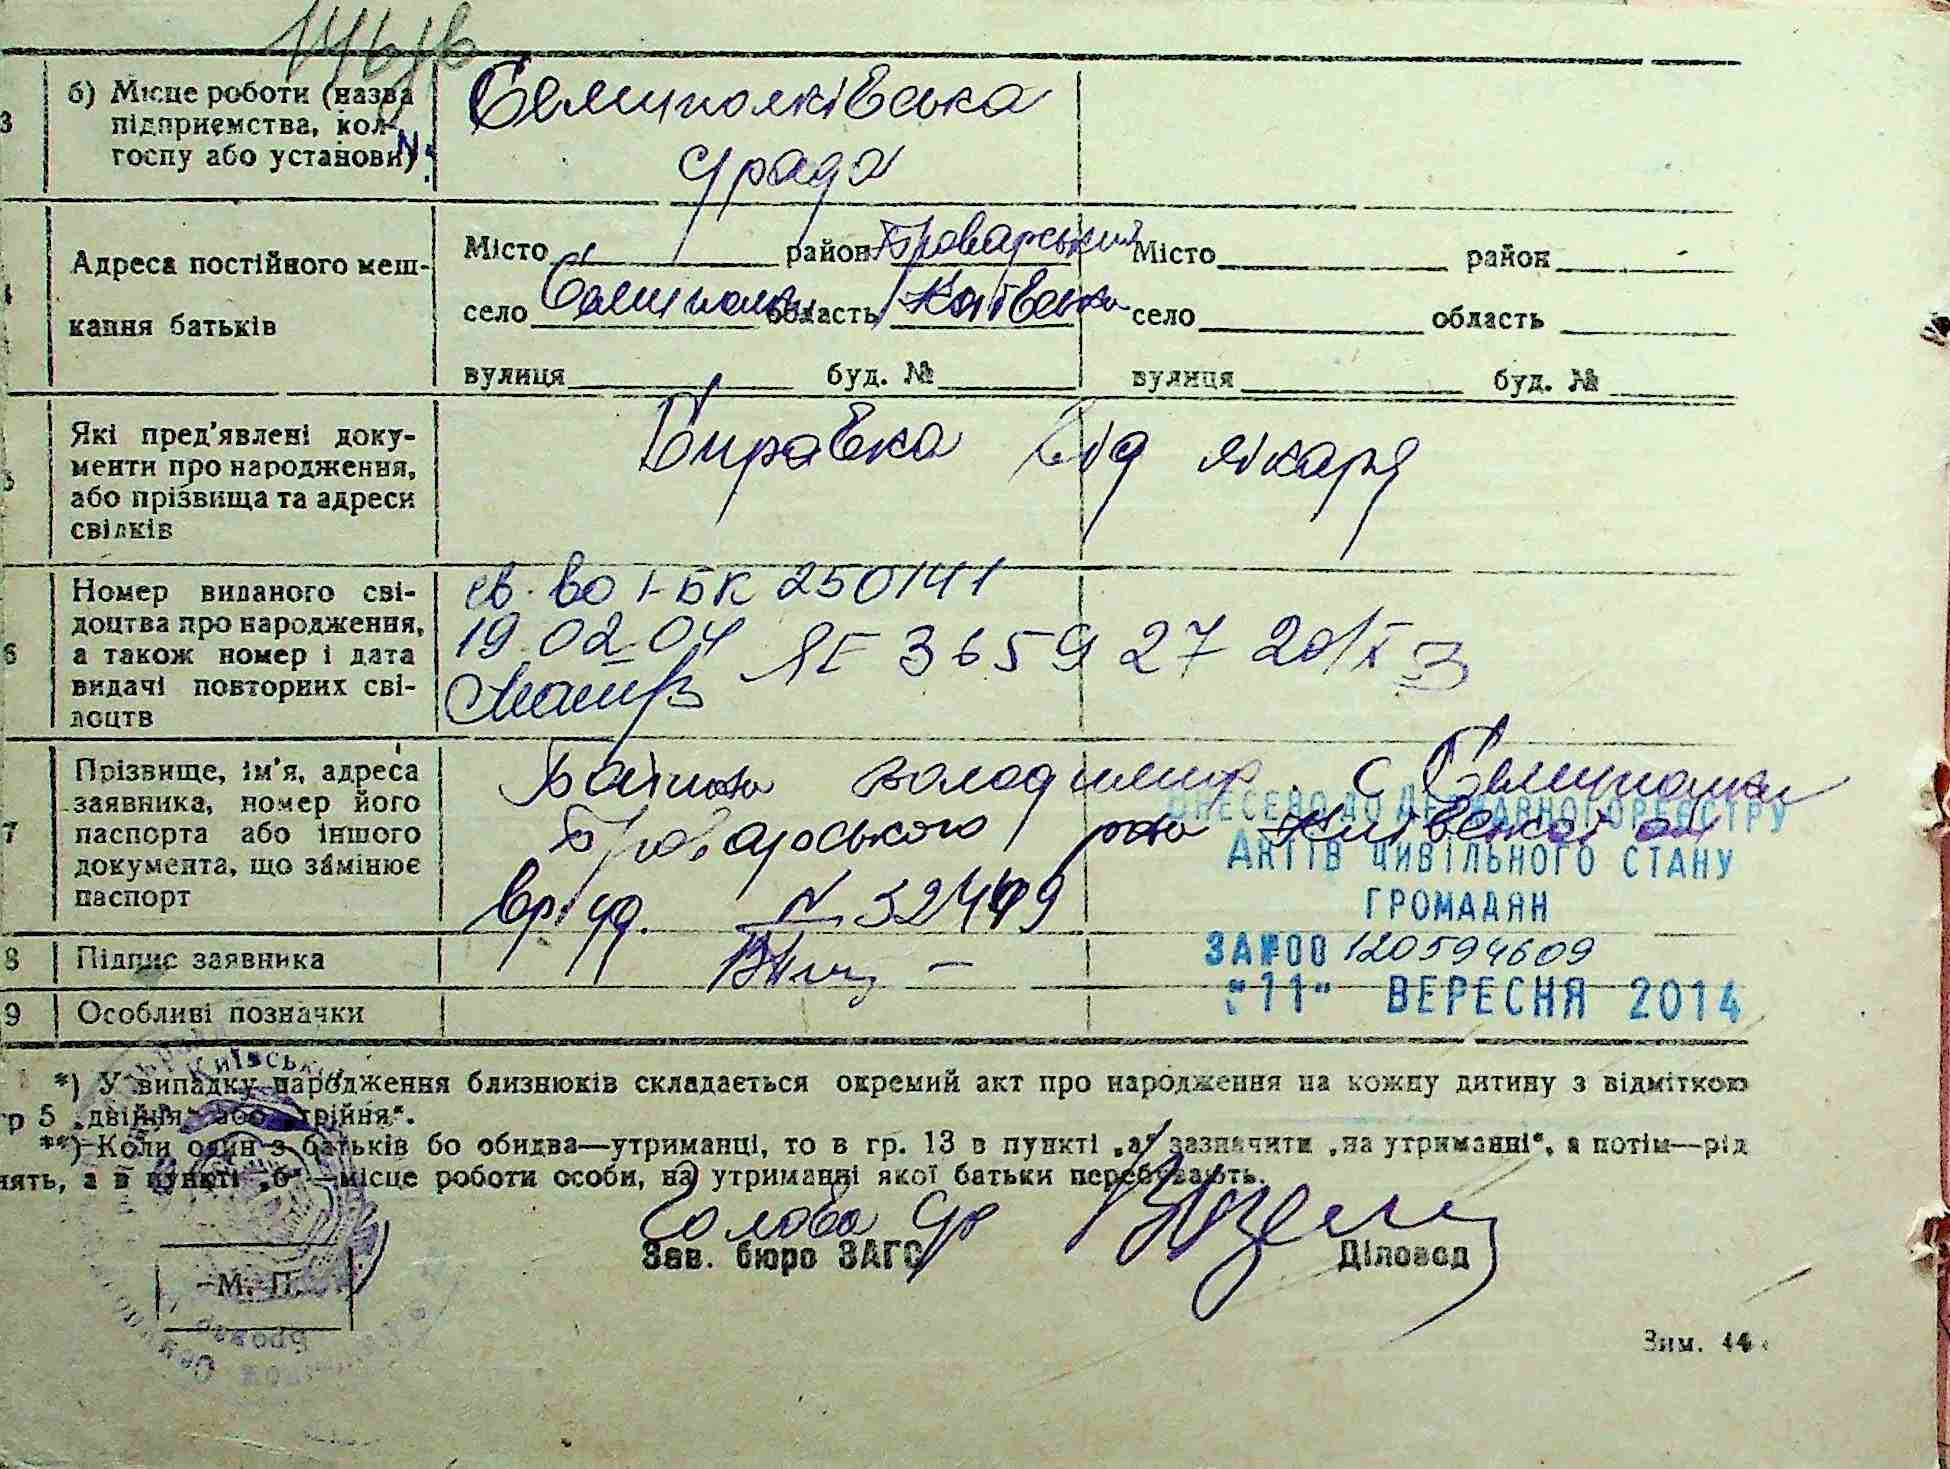 3 б) Місце роботи (назва Семиполківська
підприємства, кол-
госпу або установи) с/рада
Місто район Броварський Місто район
Адреса постійного меш-
село Семиполки область Київська село область
кання батьків
вулиця буд. № вулиця буд. №
Які пред'явлені доку- Справка від лікаря
менти про народження,
або прізвища та адреси
свідків
Номер виданого сві- св-во І-БК 250141
6 доцтва про народження, 19.02.04 ЯЕ 365927 20/X
а також номер і дата
видачі повторних сві-
доцтв
Прізвище, ім'я, адреса Володимир. с Семиполки
заявника, номер його Броварського р-ну Київської обл
7 паспорта або іншого
документа, що замінює
паспорт № 32449
ВНЕСЕНО ДО ДЕРЖАВНОГО РЕЄСТРУ
АКТІВ ЦИВІЛЬНОГО СТАНУ
ГРОМАДЯН
8 Підпис заявника
ЗА №00 120594609
"11" ВЕРЕСНЯ 2014
9 Особливі позначки
*) У випадку народження близнюків складається окремий акт про народження на кожну дитину з відміткою
гр 5 „двійня" або „трійня".
**) Коли один з батьків бо обидва—утриманці, то в гр. 13 в пункті „а" зазначити „на утриманні", а потім—рід
нять, а в пункті „б"—місце роботи особи, на утриманні якої батьки перебувають.
Голова с/р
Зав. бюро ЗАГС Діловод
М. П.
Зим. 44